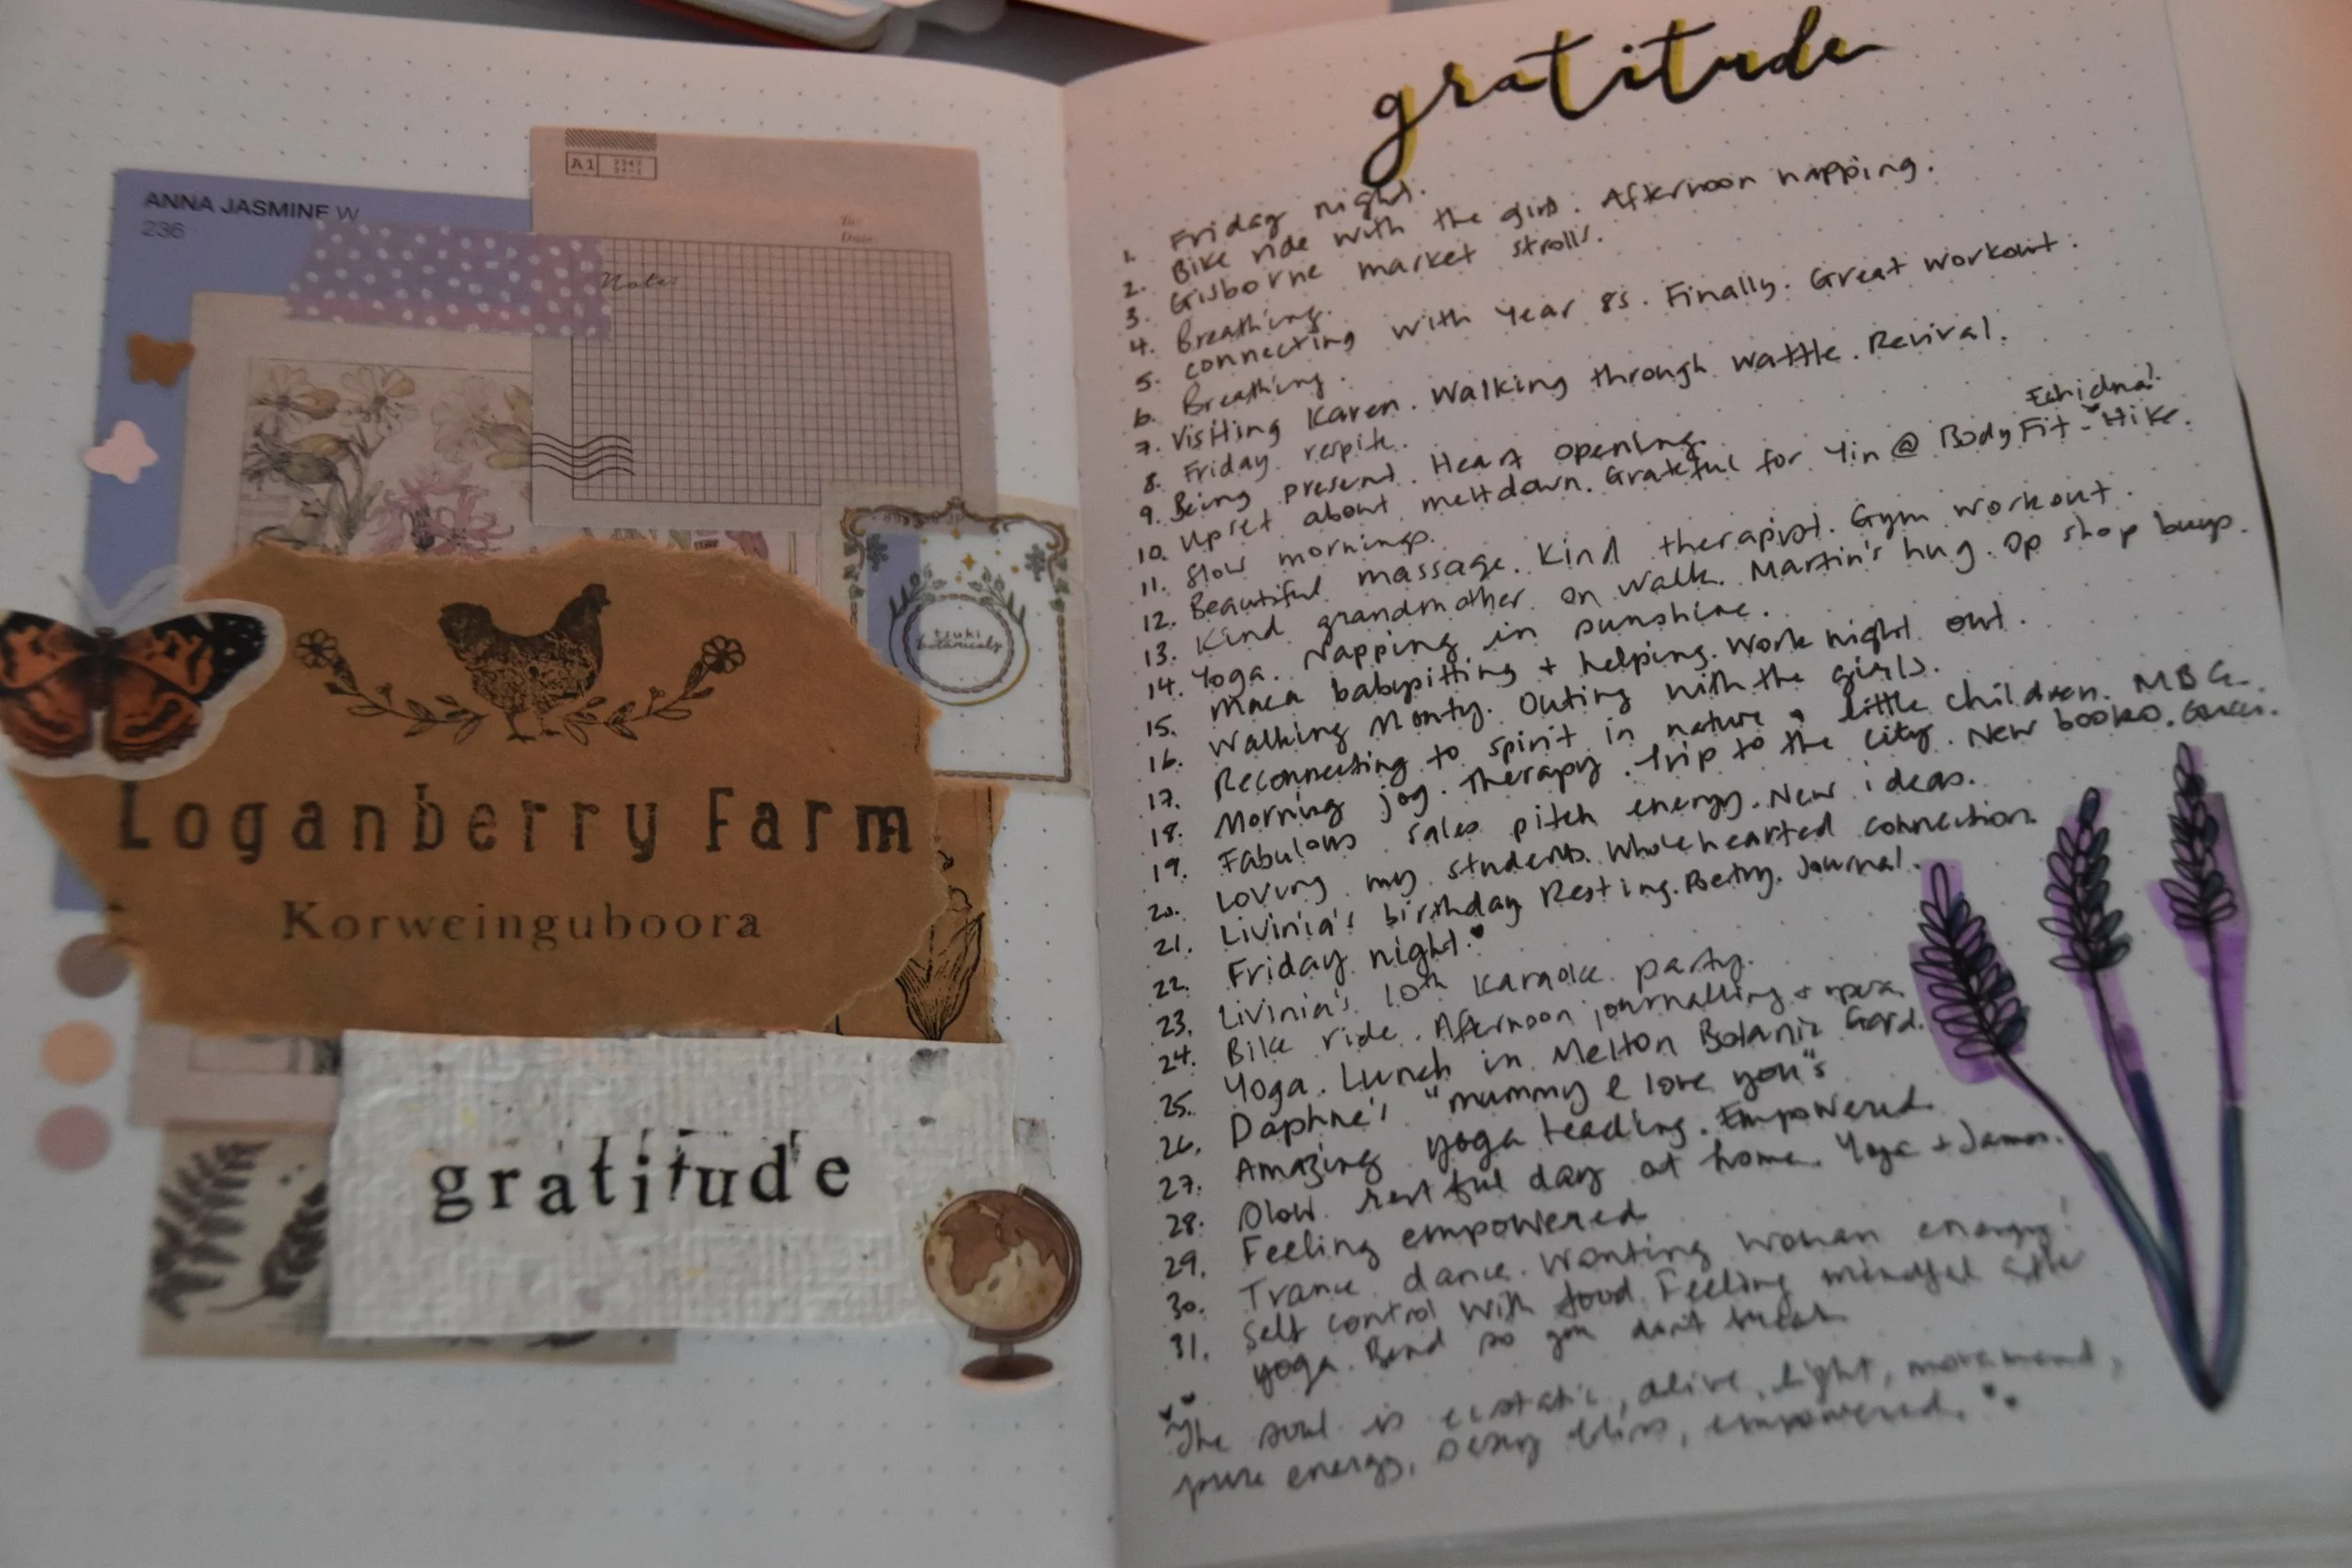 ANNA JASMINE W
236
A1
To:
Date:
Notes
tsuki
botanicals
Loganberry Farm
Korweinguboora
gratitude
gratitude
1. Friday night.
2. Bike ride with the girls. Afternoon napping.
3. Gisborne market strolls.
4. Breathing.
5. Connecting with Year 8s. Finally. Great workout.
6. Breathing.
7. Visiting Karen. Walking through wattle. Revival.
8. Friday respite.
9. Being present. Heart opening.
Echidna!
10. Upset about meltdown. Grateful for Yin @ BodyFit - Hike.
11. Slow mornings.
12. Beautiful massage. Kind therapist. Gym workout.
13. Kind grandmother on walk. Martin's hug. Op shop buys.
14. Yoga. Napping in sunshine.
15. Maca babysitting + helping. Work night out.
16. Walking Monty. Outing with the girls.
17. Reconnecting to spirit in nature & little children. MBG.
18. Morning jog. Therapy. Trip to the city. New books.
19. Fabulous sales pitch energy. New ideas.
20. Loving my students. Wholehearted connection.
21. Livinia's birthday Resting. Poetry. Journal.
22. Friday night.
23. Livinia's 10th Karaoke party.
24. Bike ride. Afternoon journalling + opera
25. Yoga. Lunch in Melton Botanic Gard.
26. Daphne's "mummy I love you"s
27. Amazing yoga teaching. Empowered
28. Slow restful day at home. Yoga +
29. Feeling empowered
30. Trance dance. Wanting woman energy!
31. Self control with food. Feeling mindful after
yoga. Bend so you don't break
"The soul is ecstatic, alive, light, movement,
pure energy, sexy bliss, empowered."